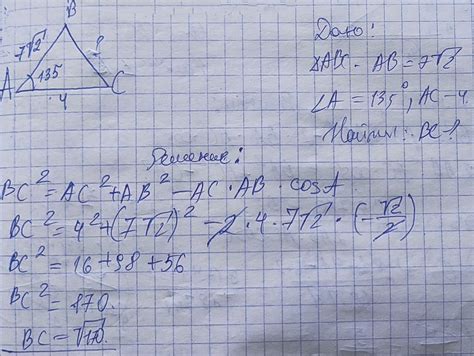 B
7√2
?
A
135
C
4
Дано:
△ABC - AB = 7√2
∠A = 135°, AC - 4
Найти: BC - ?
Решение:
BC² = AC² + AB² - AC · AB · cosA
BC² = 4² + (7√2)² - 2 · 4 · 7√2 · (-√2/2)
BC² = 16 + 98 + 56
BC² = 170.
BC = √170.